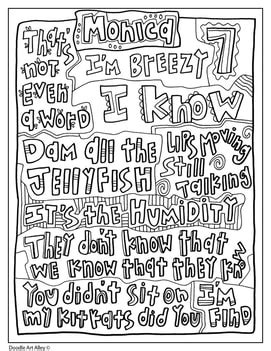 Monica
7
That's
not
Even
a word
I'm Breezy
I know
Dam all the
Jellyfish
Lips moving
Still
Talking
It's the Humidity
They don't know that
we know that they know
You didn't sit on
my kit kats did you
I'm
Fihd
Doodle Art Alley ©